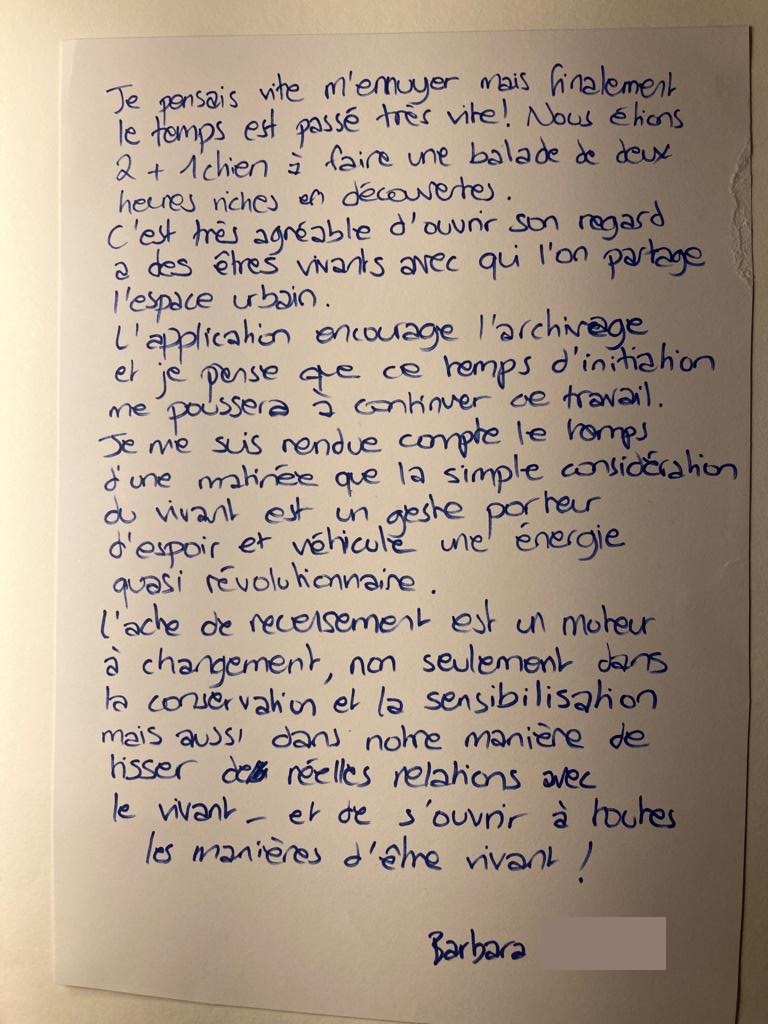 Je pensais vite m'ennuyer mais finalement
le temps est passé très vite! Nous étions
2 + 1 chien à faire une balade de deux
heures riches en découvertes.
C'est très agréable d'ouvrir son regard
a des êtres vivants avec qui l'on partage
l'espace urbain.
L'application encourage l'archivage
et je pense que ce temps d'initiation
me poussera à continuer ce travail.
Je me suis rendue compte le temps
d'une matinée que la simple considération
du vivant est un geste porteur
d'espoir et véhicule une énergie
quasi révolutionnaire.
L'acte de recensement est un moteur
à changement, non seulement dans
la conservation et la sensibilisation
mais aussi dans notre manière de
tisser de réelles relations avec
le vivant – et de s'ouvrir à toutes
les manières d'être vivant !
Barbara